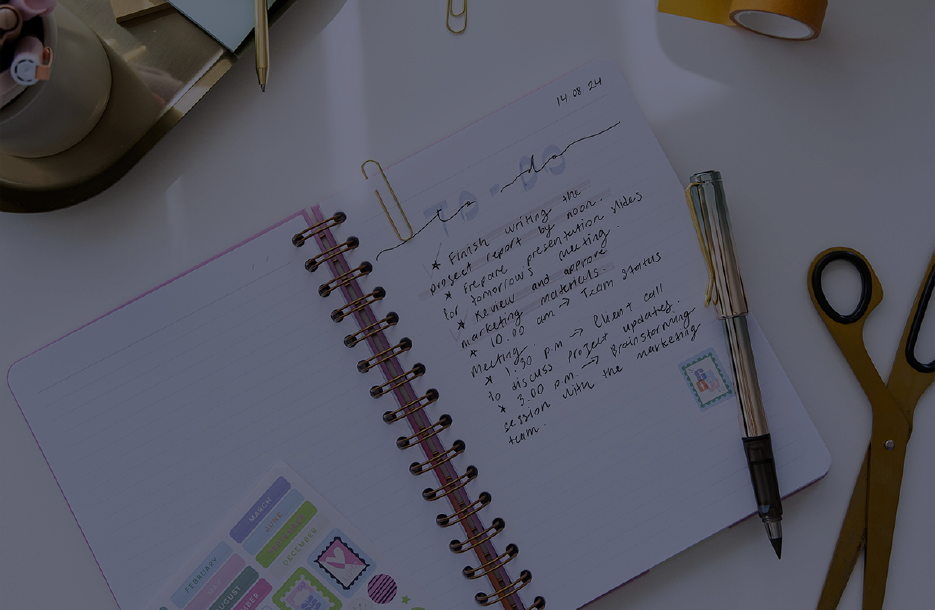 14.08.24
to - do
TO-DO
* Finish writing the
project report by noon.
* Prepare presentation slides
for tomorrows meeting.
* Review and approve
marketing materials.
* 10.00 am → Team status
Meeting
* 1:30 p.m → Client call
to discuss project updates.
* 3:00 p.m. → Brainstorming
session with the marketing
team.
MARCH
JUNE
DECEMBER
FEBRUARY
AUGUST